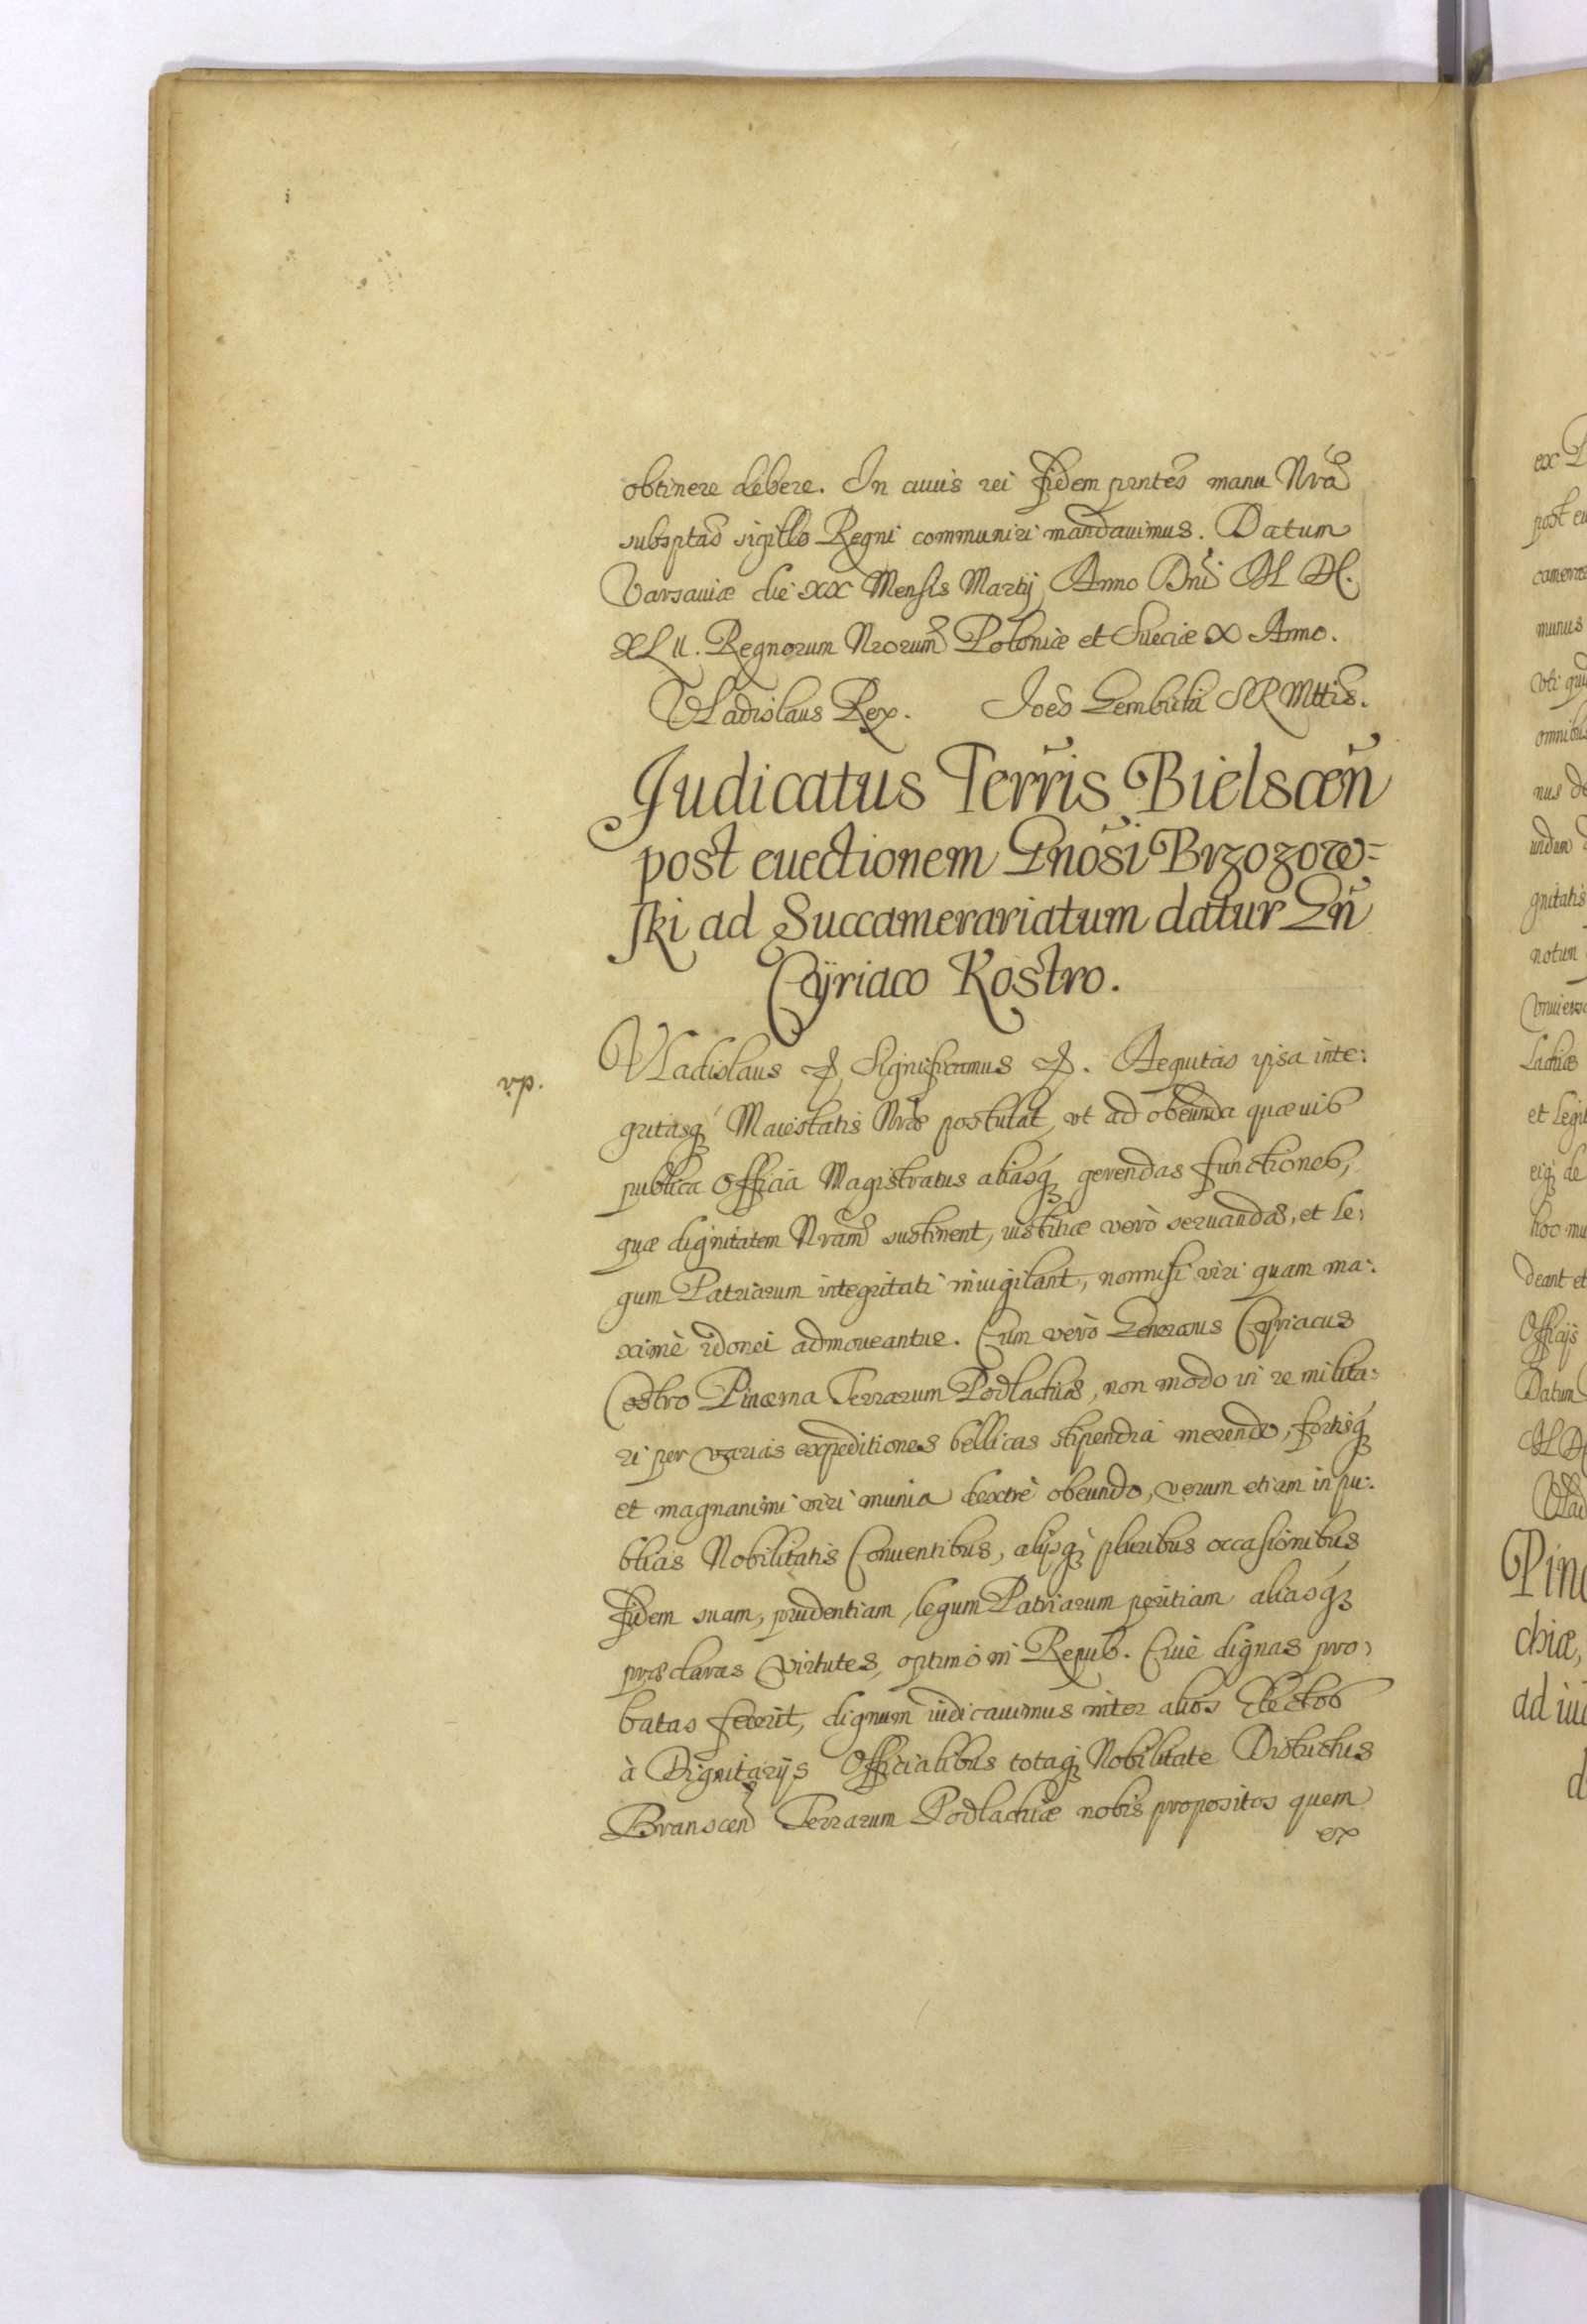 obtinere debere. In cuius rei fidem prntes manu Nra
subsptas sigillo Regni communiri mandauimus. Datum
Varsauiæ die XX Mensis Martij Anno Dni M DC.
XLII. Regnorum Nrorum Poloniæ et Sueciæ X Anno.
Vladislaus Rex. Joes Gembicki SRMttis.
Judicatus Terris Bielscen
post euectionem Gnosi Brzozow=
ski ad Succamerariatum datur Gn
Cyriaco Kostro.
Vladislaus &. Significamus &. Aequitas ipsa inte:
gritasq Maiestatis Nræ postulat, vt ad obeunda quæuis
publica Officia Magistratus aliasq gerendas functiones,
quæ dignitatem Nram sustinent, iustitiæ verò seruandæ, et le:
gum Patriarum integritati inuigilant, nonnisi viri quam ma:
ximè idonei admoueantur. Cum verò Generosus Cyriacus
Costro Pincerna Terrarum Podlachiæ, non modo in re milita:
ri per varias expeditiones bellicas stipendia merendo, fortisq
et magnanimi viri munia dextrè obeundo, verum etiam in pu:
blicis Nobilitatis Conuentibus, alijsq pluribus occasionibus
fidem suam, prudentiam, legum Patriarum peritiam aliasq
præclaras virtutes, optimo in Repub. Ciue dignas pro:
batas fecerit, dignum iudicauimus inter alios Electos
à Dignitarijs Officialibus totaq Nobilitate Districtus
Branscen Terrarum Podlachiæ nobis propositos quem
ex